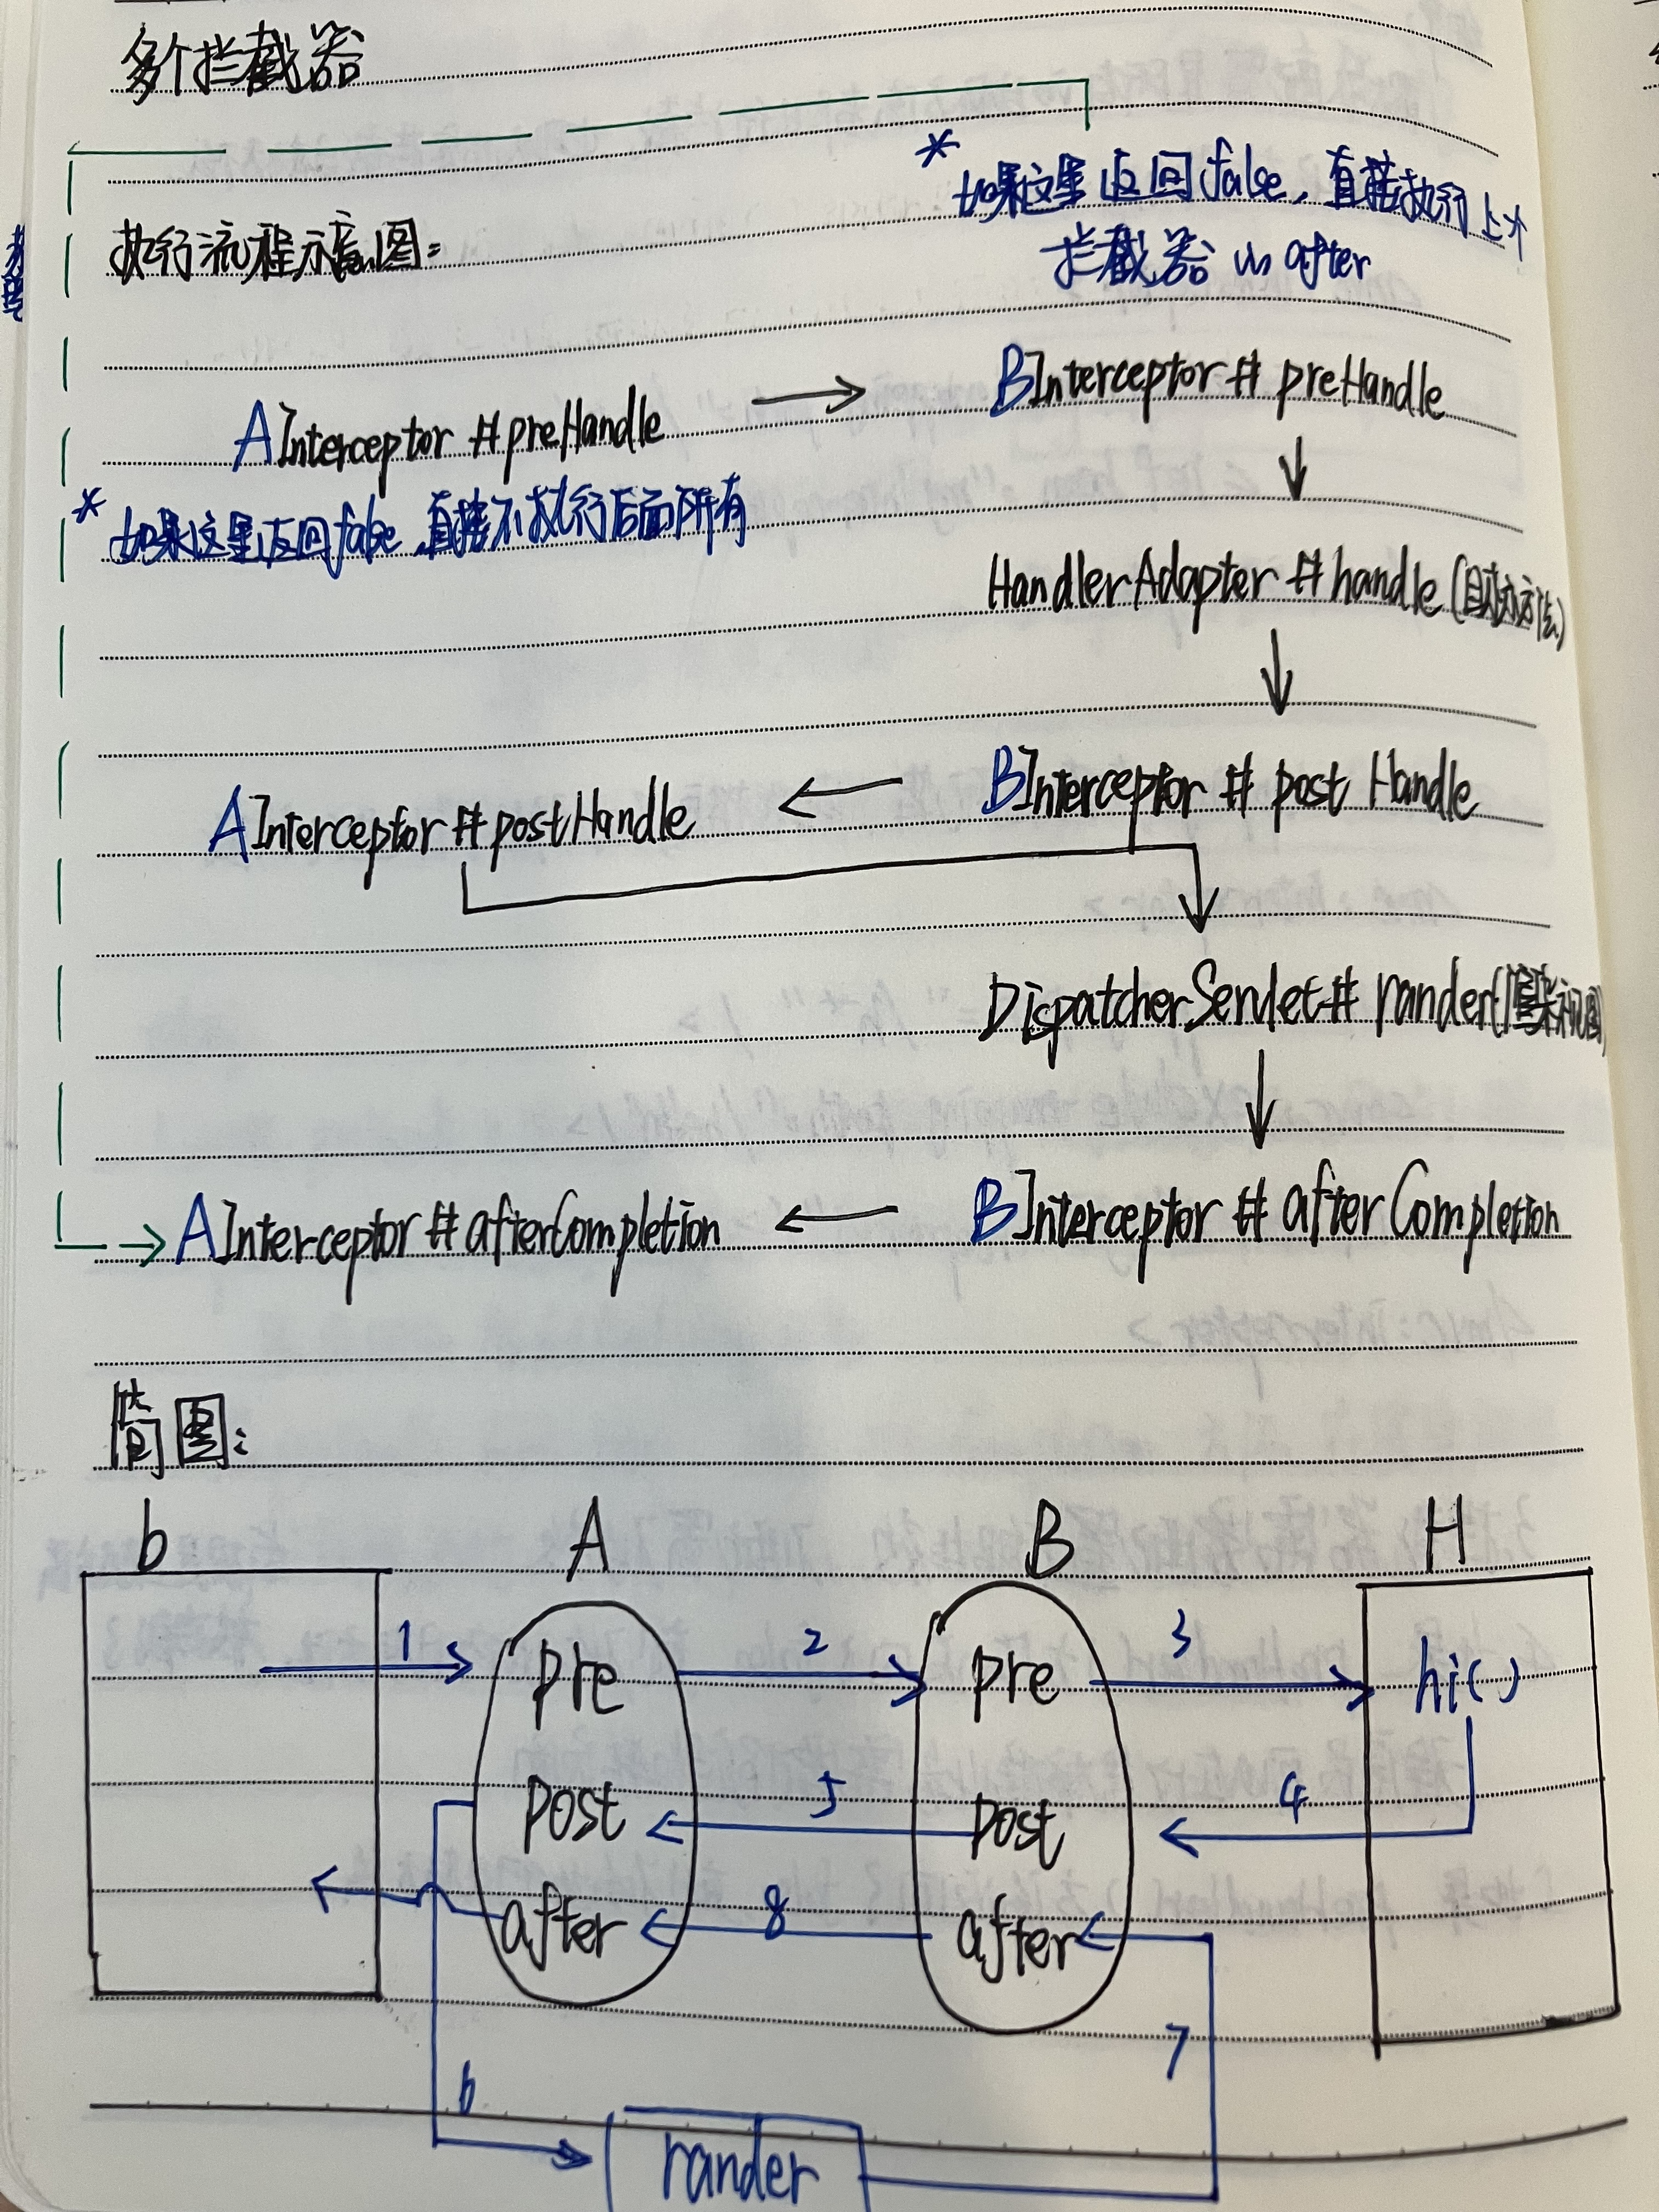 多个拦截器
* 如果这里返回false，直接执行上个
拦截器的after
执行流程示意图：
AInterceptor #preHandle → BInterceptor # preHandle
* 如果这里返回false，直接不执行后面所有
HandlerAdapter #handle(目标方法)
AInterceptor #postHandle ← BInterceptor # post Handle
DispatcherServlet# rander(渲染视图)
AInterceptor #afterCompletion ← BInterceptor # afterCompletion
简图：
b A B H
1 2 3
pre pre hi()
5 4
post post
8
after after
7
6
rander